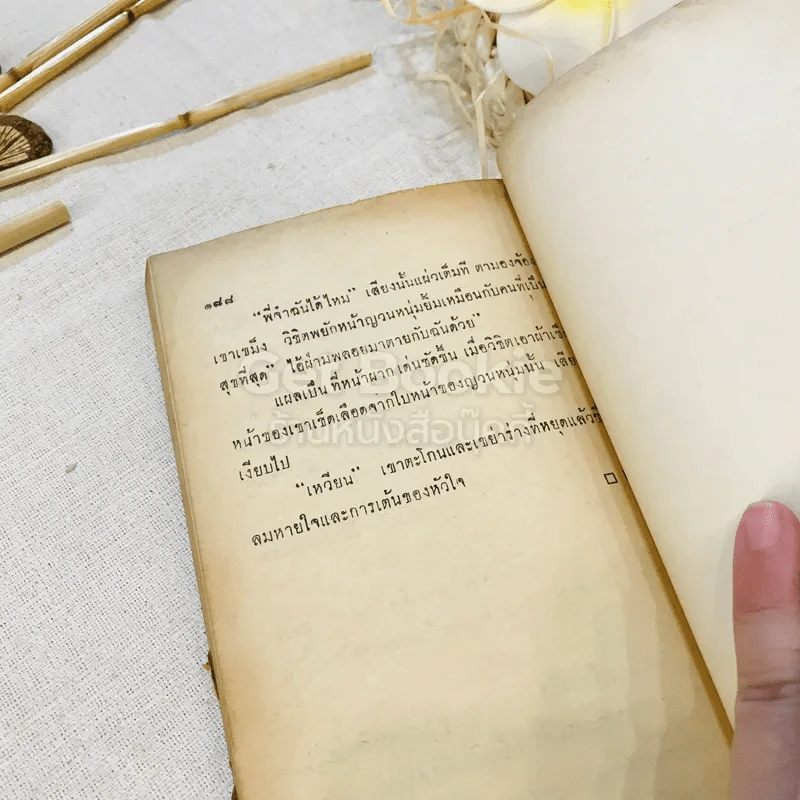 ๑๘๘
“พี่จำฉันได้ไหม” เสียงนั้นแผ่วเต็มที ตามองจ้อง
เขาเขม็ง วิชิตพยักหน้าญวนหนุ่มยิ้มเหมือนกับคนที่เป็น
สุขที่สุด” ไอ้ฝ่ามพลอยมาตายกับฉันด้วย’
แผลเป็น ที่หน้าผาก เด่นชัดขึ้น เมื่อวิชิตเอาผ้าเช็ด
หน้าของเขาเช็ดเลือดจากใบหน้าของญวนหนุ่มนั้น
เงียบไป
“เหวียน” เขาตะโกนและเขย่าร่างที่หยุดแล้ว
ลมหายใจและการเต้นของหัวใจ
□
Get Bookie
ร้านหนังสือบุ๊คกี้